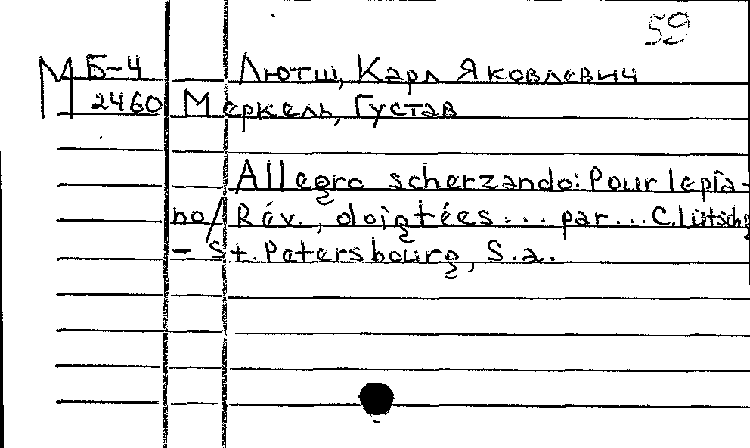 59
М Б-4 Лютш, Карл Яковлевич
2460 Меркель, Густав
Allegro scherzando: Pour le pia-
no/Rév., doigtées... par... C. Lütschg
- St. Petersbourg, S.a.